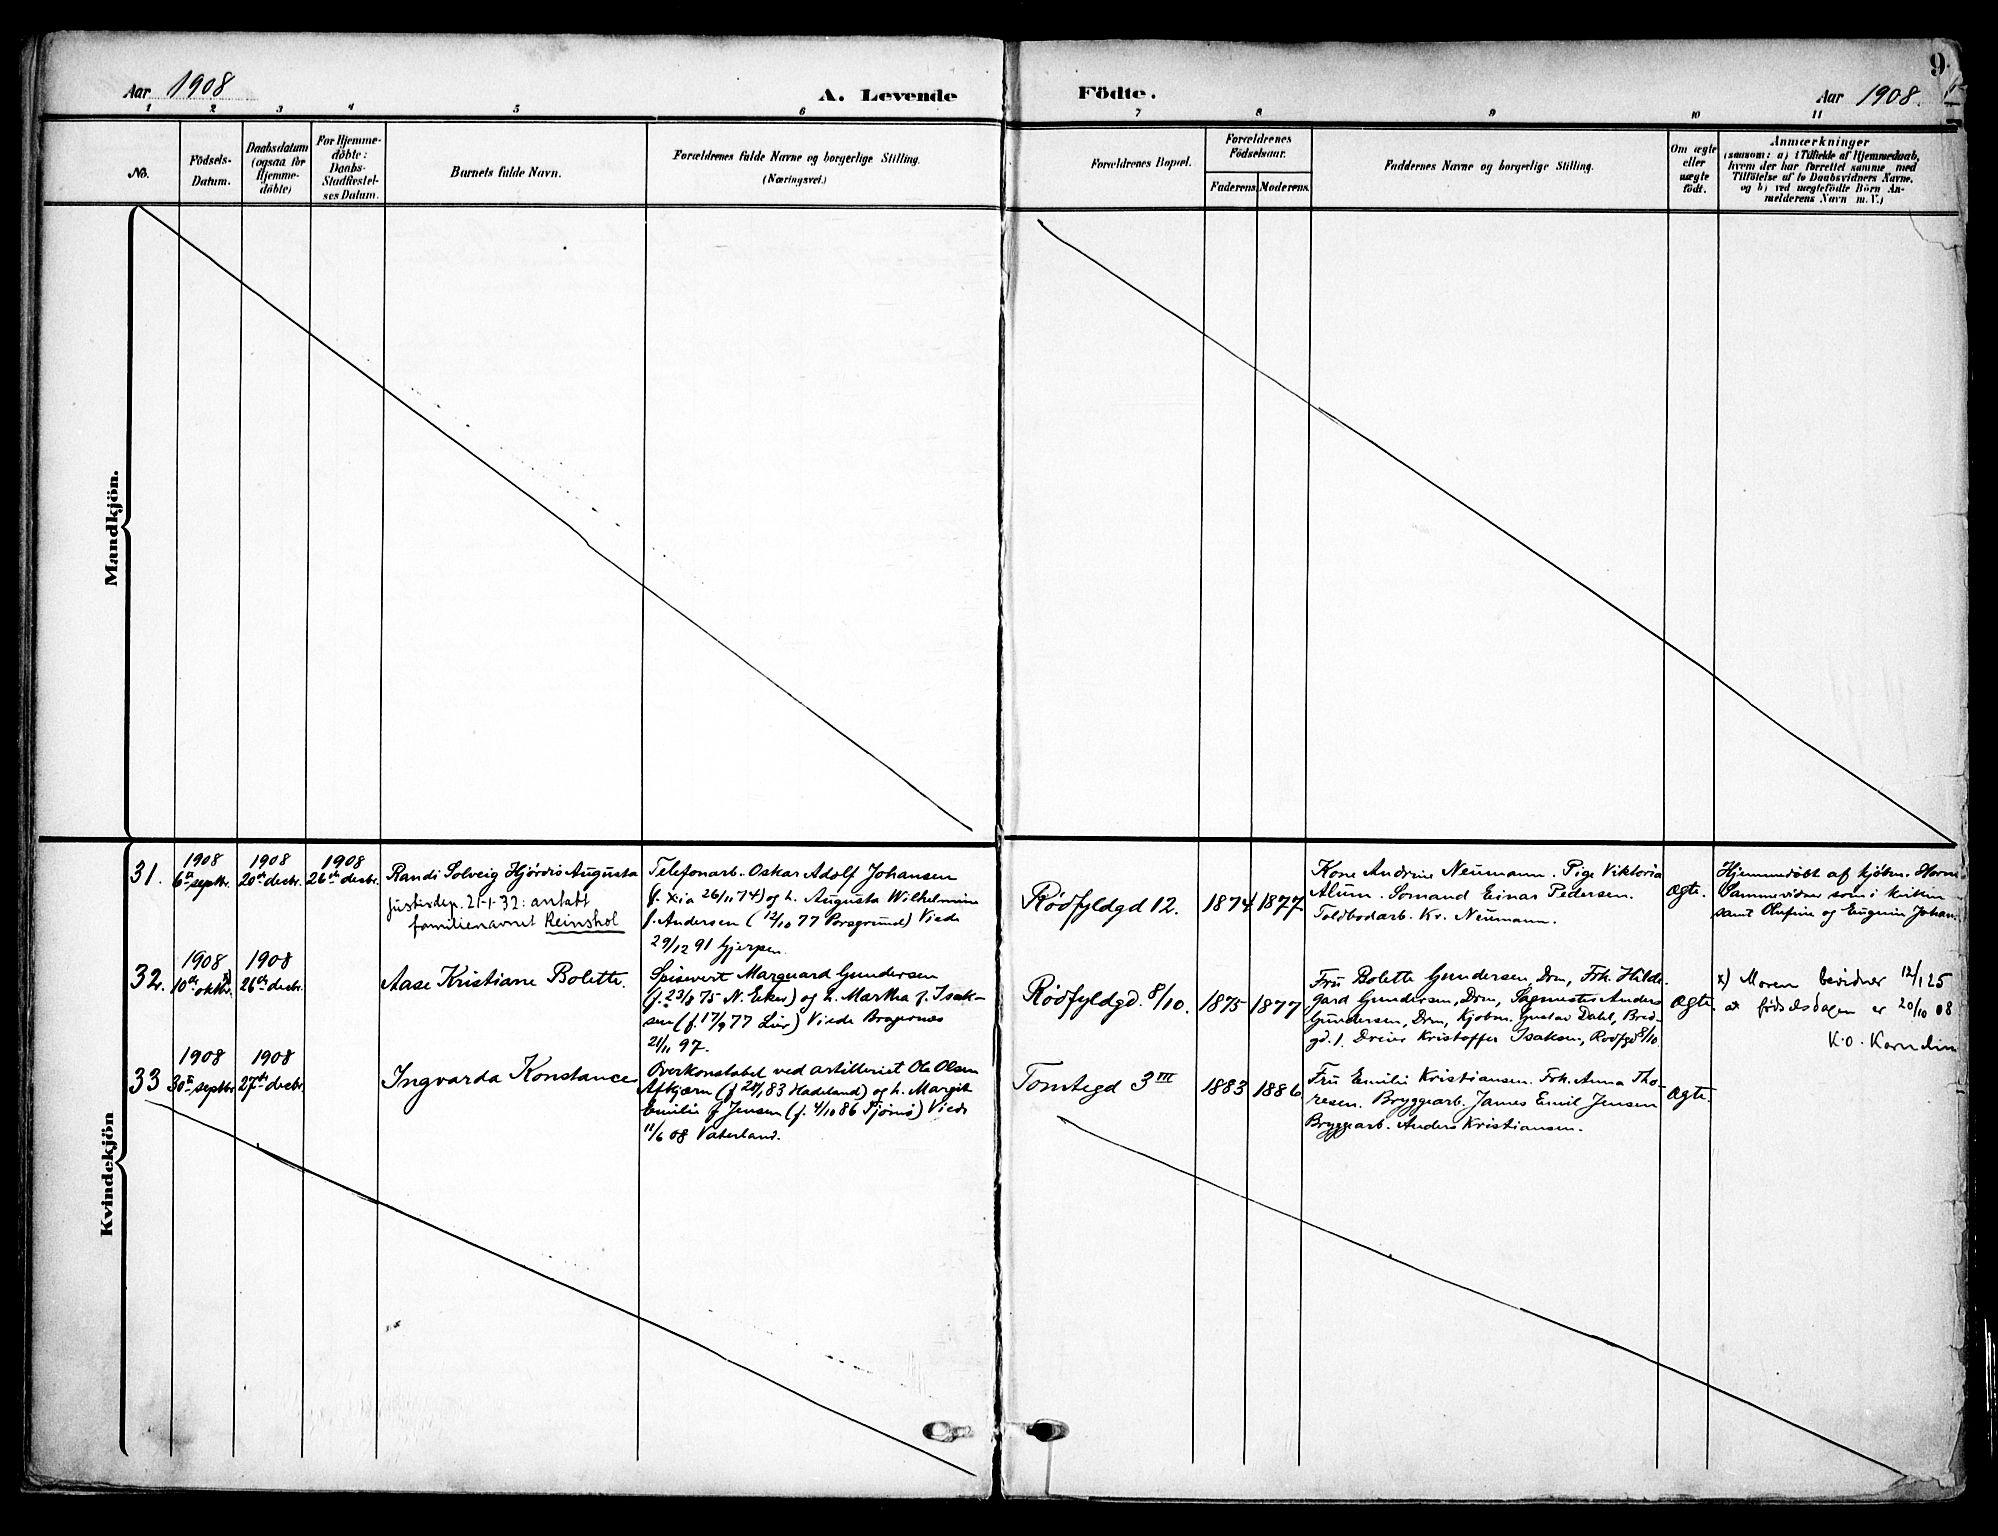 Aar 1908
A. Levende
Födte.
Aar 1908.
9
1 2 3 4 5 6 7 8 9 10 11
No.
Födsels-
Datum.
Daabsdatum
(ogsaa for
Hjemme-
döbte)
For Hjemme-
döbte:
Daabs-
Stadfæstel-
ses Datum.
Barnets fulde Navn.
Forældrenes fulde Navne og borgerlige Stilling.
(Næringsvei.)
Forældrenes Bopæl.
Forældrenes
Födselsaar.
Faderens.
Moderens.
Faddernes Navne og borgerlige Stilling.
Om ægte
eller
uægte
födt.
Anmærkninger
(saasom: a) i Tilfælde af Hjemmedaab,
hvem der har forrettet samme med
Tilföielse af to Daabsvidners Navne.
og b) ved uægtefödte Börn An-
melderens Navn m. V.)
Mandkjön.
Kvindekjön
31.
1908
6te septbr.
1908
20de decbr.
1908
26de decbr.
Randi Solveig Hjördis Augusta
Justisdep. 21-1-32: antatt
familienavnet Reinshol
Telefonarb. Oskar Adolf Johansen
(f. Xia 26/11 74) og h. Augusta Wilhelmine
f. Andersen (12/10 77 Porsgrund) Viede
29/12 91 Gjerpen.
Rødfyldgd 12.
1874
1877
Kone Andrine Neumann. Pige Viktoria
Alum. Sømand Einar Pedersen.
Toldbodarb. Kr. Neumann.
Ægte.
Hjemmedöbt af kjöbm.
samt Olufine og Eugenie Johan
32.
1908
10de oktbr. x)
1908
26de decbr.
Aase Kristiane Bolette.
Spisevert Marguard Gundersen
(f. 23/8 75 N. Eker) og h. Martha f. Isak-
sen (f. 17/9 77 Lier) Viede Bragernæs
21/11 97.
Rødfyldgd. 8/10.
1875
1877
Fru Bolette Gundersen, Drm, Frk. Hilde-
gard Gundersen, Drm, Sagmester Anders
Gundersen, Drm, Kjøbm. Gustav Dahl, Bred-
gd. 1. Dreier Kristoffer Isaksen, Rødfgd 8/10.
Ægte.
x) Moren bevidner 12/1 25
at fødselsdagen er 20/10 08
K.O. Kornelin
33
1908
30te septbr.
1908
27de decbr.
Ingvarda Konstance
Overkonstabel ved artilleriet Ole Olsen
Askjærn (f. 20/1 83 Hadeland) og h. Margit
Emilie f Jensen (f. 4/10 86 Tjömö) Viede
11/6 08 Vaterland.
Tomtegd 3 III
1883
1886
Fru Emilie Kristiansen. Frk. Anna Tho-
resen. Bryggearb. James Emil Jensen
Bryggearb. Anders Kristiansen.
Ægte.